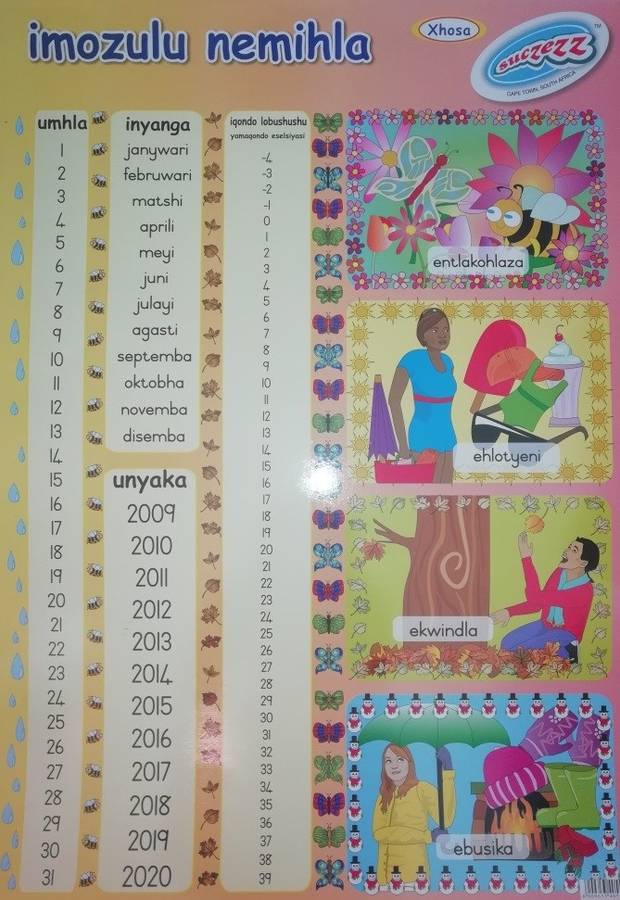 imozulu nemihla
Xhosa
suczezz
TM
CAPE TOWN, SOUTH AFRICA
umhla
1
2
3
4
5
6
7
8
9
10
11
12
13
14
15
16
17
18
19
20
21
22
23
24
25
26
27
28
29
30
31
inyanga
janywari
februwari
matshi
aprili
meyi
juni
julayi
agasti
septemba
oktobha
novemba
disemba
unyaka
2009
2010
2011
2012
2013
2014
2015
2016
2017
2018
2019
2020
iqondo lobushushu
yamaqondo eselsiyasi
-4
-3
-2
-1
0
1
2
3
4
5
6
7
8
9
10
11
12
13
14
15
16
17
18
19
20
21
22
23
24
25
26
27
28
29
30
31
32
33
34
35
36
37
38
39
entlakohlaza
ehlotyeni
ekwindla
ebusika